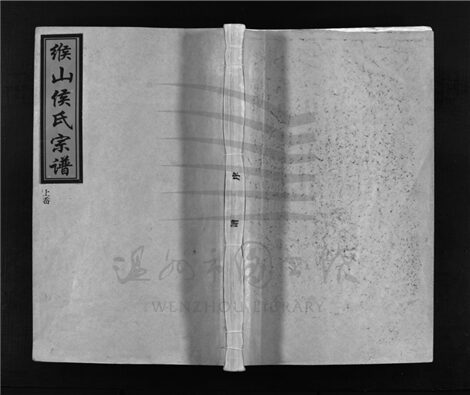 缑山侯氏宗谱
上岙
序
谱
温州市图书馆
WENZHOU LIBRARY